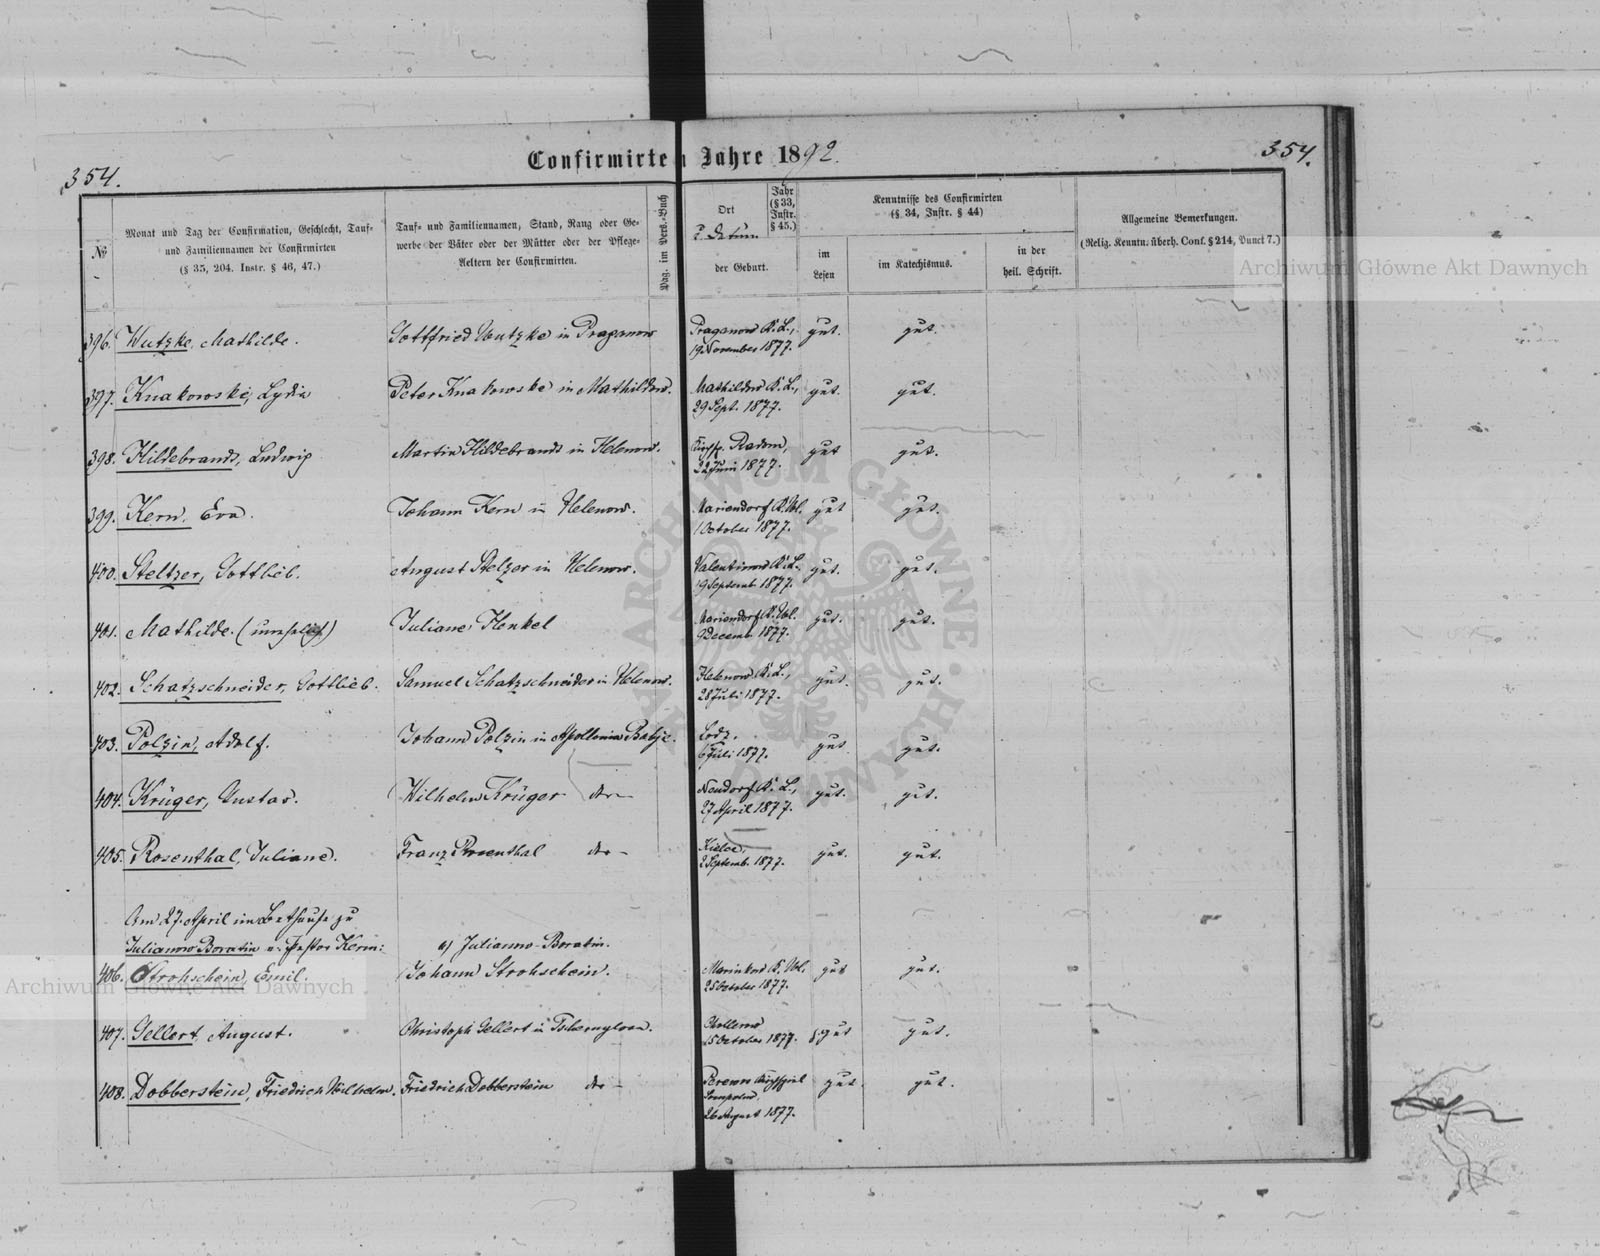 354.
Confirmirten Jahre 1892.
354.
№
Monat und Tag der Confirmation, Geschlecht, Tauf-
und Familiennamen der Confirmirten
(§ 35, 204. Instr. § 46, 47.)
Tauf- und Familiennamen, Stand, Rang oder Ge-
werbe der Väter oder der Mütter oder der Pflege-
Aeltern der Confirmirten.
Pag. im Pers.-Buch
Ort
Datum
der Geburt.
Jahr
(§ 33,
Instr.
§ 45.)
Kenntnisse des Confirmirten
(§ 34, Instr. § 44)
im
Lesen
im Katechismus.
in der
heil. Schrift.
Allgemeine Bemerkungen.
(Relig. Kenntn. überh. Conf. § 214, Punct 7.)
Archiwum Główne Akt Dawnych
396. Wutzke, Mathilde. Gottfried Wutzke in Praganow Praganow K. L., gut. gut.
19 November 1877.
397. Knakowski, Lydia Peter Knakowski in Mathildow. Mathildow K. L., gut. gut.
29 Sept. 1877.
398. Hildebrandt, Ludwig Martin Hildebrandt in Helenow. Radom, gut gut.
22 Juni 1877.
399. Kern, Eva. Johann Kern in Helenow. Mariendorf K. Wl. gut gut.
1 October 1877.
400. Steltzer, Gottlieb. August Stelzer in Helenow. Valentinow K. L., gut. gut.
19 Septemb 1877.
401. Mathilde. (unehelich) Juliane Henkel Mariendorf K. Wl. gut. gut.
Decemb. 1877.
402. Schatzschneider, Gottlieb. Samuel Schatzschneider in Helenow. Helenow K. L., gut. gut.
28 Juli 1877.
403. Polzin, Adolf. Johann Polzin in Apollonia Babje. Lodz. gut gut.
6 Juli 1877.
404. Krüger, Gustav. Wilhelm Krüger dto Neudorf K. L., gut. gut.
27 April 1877.
405. Rosenthal, Juliane. Franz Rosenthal dto Kielce, gut. gut.
2 Septemb. 1877.
Am 27. April im Bethause zu
Julianow Boratin v. Pastor Kerm:
a) Julianow-Boratin.
406. Strohschein, Emil. Johann Strohschein. K. Wl. gut gut.
25 October 1877.
407. Gellert, August. Christoph Gellert in gut gut.
25 October 1877.
408. Dobberstein, Friedrich Wilhelm. Friedrich Dobberstein dto Kirchspiel gut. gut.
26 August 1877.
Archiwum Główne Akt Dawnych
ARCHIWUM GŁÓWNE AKT DAWNYCH